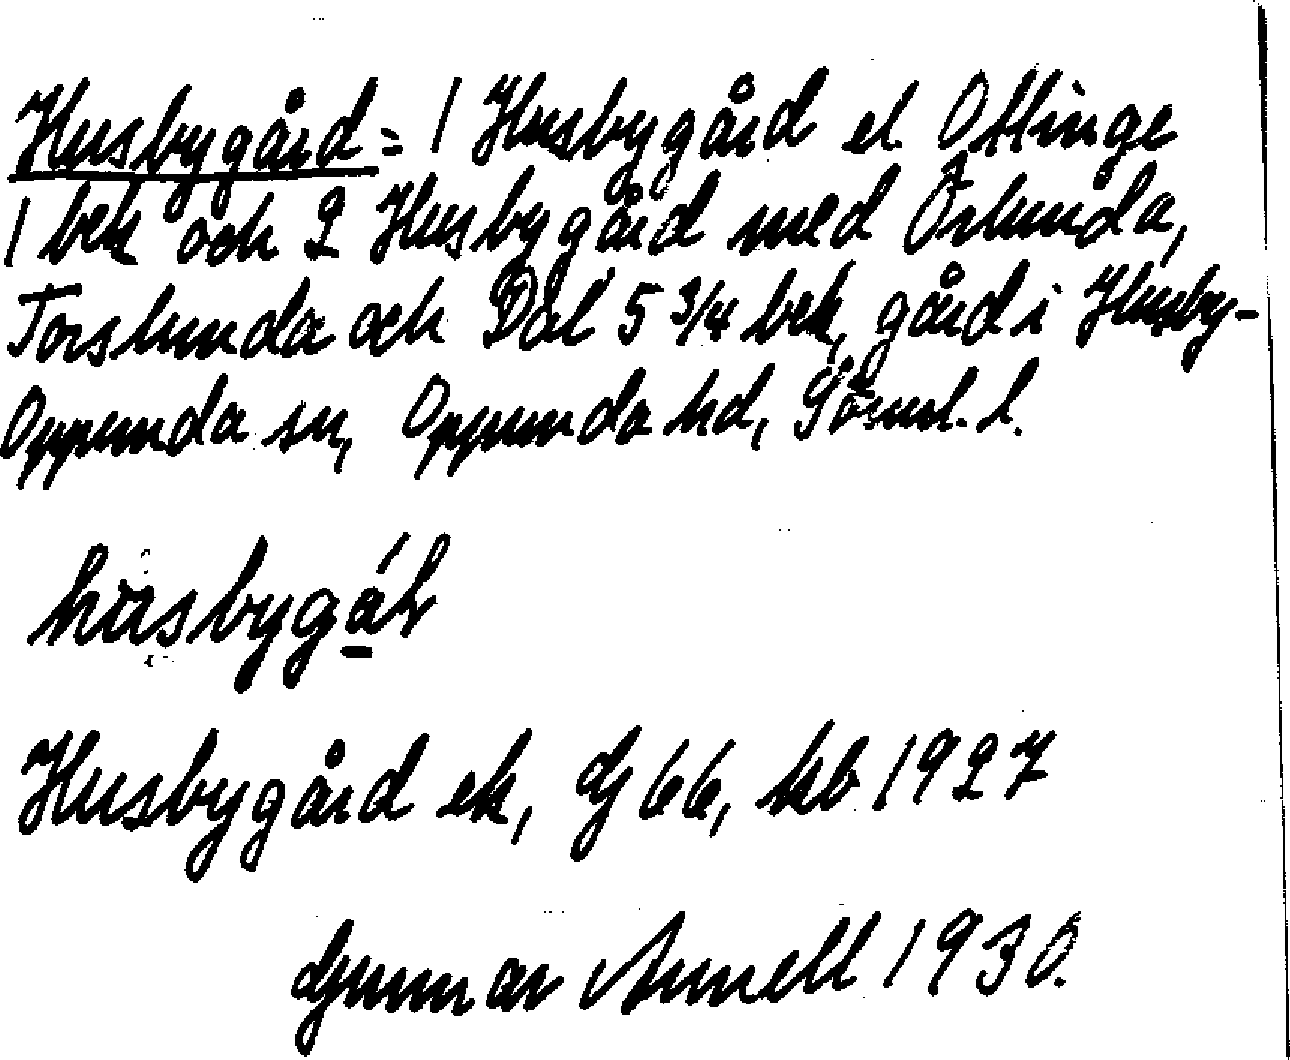 Husbygård = 1 Husbygård el. Offinge
1 bek och 2 Husbygård med Örlunda,
Torslunda och Dal 5 3/4 bek, gård i Husby-
Oppunda sn, Oppunda hd, Sörml. l.
husbygáḷ
Husbygård ek, Gj 66, kb 1927
Gunnar Arnell 1930.